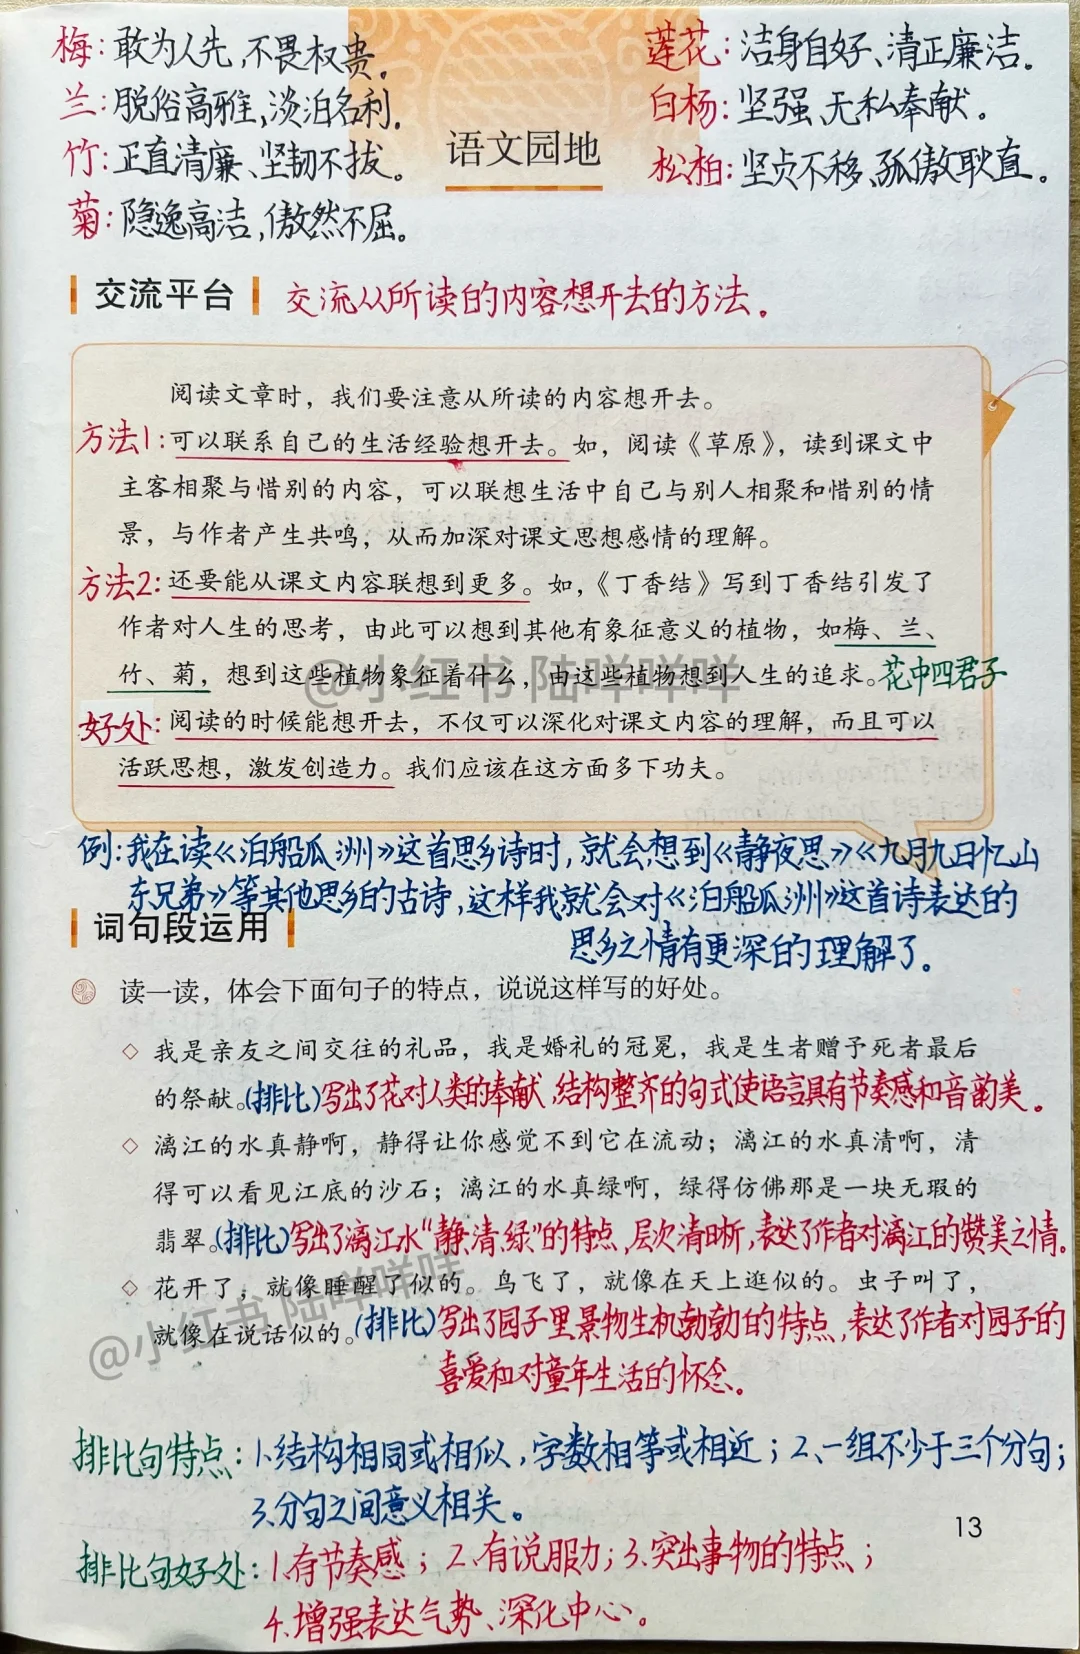 梅：敢为人先，不畏权贵。
莲花：洁身自好、清正廉洁。
兰：脱俗高雅，淡泊名利。
白杨：坚强、无私奉献。
语文园地
竹：正直清廉、坚韧不拔。
松柏：坚贞不移、孤傲耿直。
菊：隐逸高洁，傲然不屈。
交流平台 交流从所读的内容想开去的方法。
阅读文章时，我们要注意从所读的内容想开去。
方法1：可以联系自己的生活经验想开去。如，阅读《草原》，读到课文中
主客相聚与惜别的内容，可以联想生活中自己与别人相聚和惜别的情
景，与作者产生共鸣，从而加深对课文思想感情的理解。
方法2：还要能从课文内容联想到更多。如，《丁香结》写到丁香结引发了
作者对人生的思考，由此可以想到其他有象征意义的植物，如梅、兰、
竹、菊，想到这些植物象征着什么，由这些植物想到人生的追求。花中四君子
@小红书 陆咩咩咩
好处：阅读的时候能想开去，不仅可以深化对课文内容的理解，而且可以
活跃思想，激发创造力。我们应该在这方面多下功夫。
例：我在读《泊船瓜洲》这首思乡诗时，就会想到《静夜思》《九月九日忆山
东兄弟》等其他思乡的古诗，这样我就会对《泊船瓜洲》这首诗表达的
思乡之情有更深的理解了。
词句段运用
读一读，体会下面句子的特点，说说这样写的好处。
◇ 我是亲友之间交往的礼品，我是婚礼的冠冕，我是生者赠予死者最后
的祭献。(排比)写出了花对人类的奉献，结构整齐的句式使语言具有节奏感和音韵美。
◇ 漓江的水真静啊，静得让你感觉不到它在流动；漓江的水真清啊，清
得可以看见江底的沙石；漓江的水真绿啊，绿得仿佛那是一块无瑕的
翡翠。(排比)写出了漓江水“静、清、绿”的特点，层次清晰，表达了作者对漓江的赞美之情。
◇ 花开了，就像睡醒了似的。鸟飞了，就像在天上逛似的。虫子叫了，
就像在说话似的。(排比)写出了园子里景物生机勃勃的特点，表达了作者对园子的
喜爱和对童年生活的怀念。
@小红书 陆咩咩咩
排比句特点：1、结构相同或相似，字数相等或相近；2、一组不少于三个分句；
3、分句之间意义相关。
13
排比句好处：1、有节奏感；2、有说服力；3、突出事物的特点；
4、增强表达气势、深化中心。